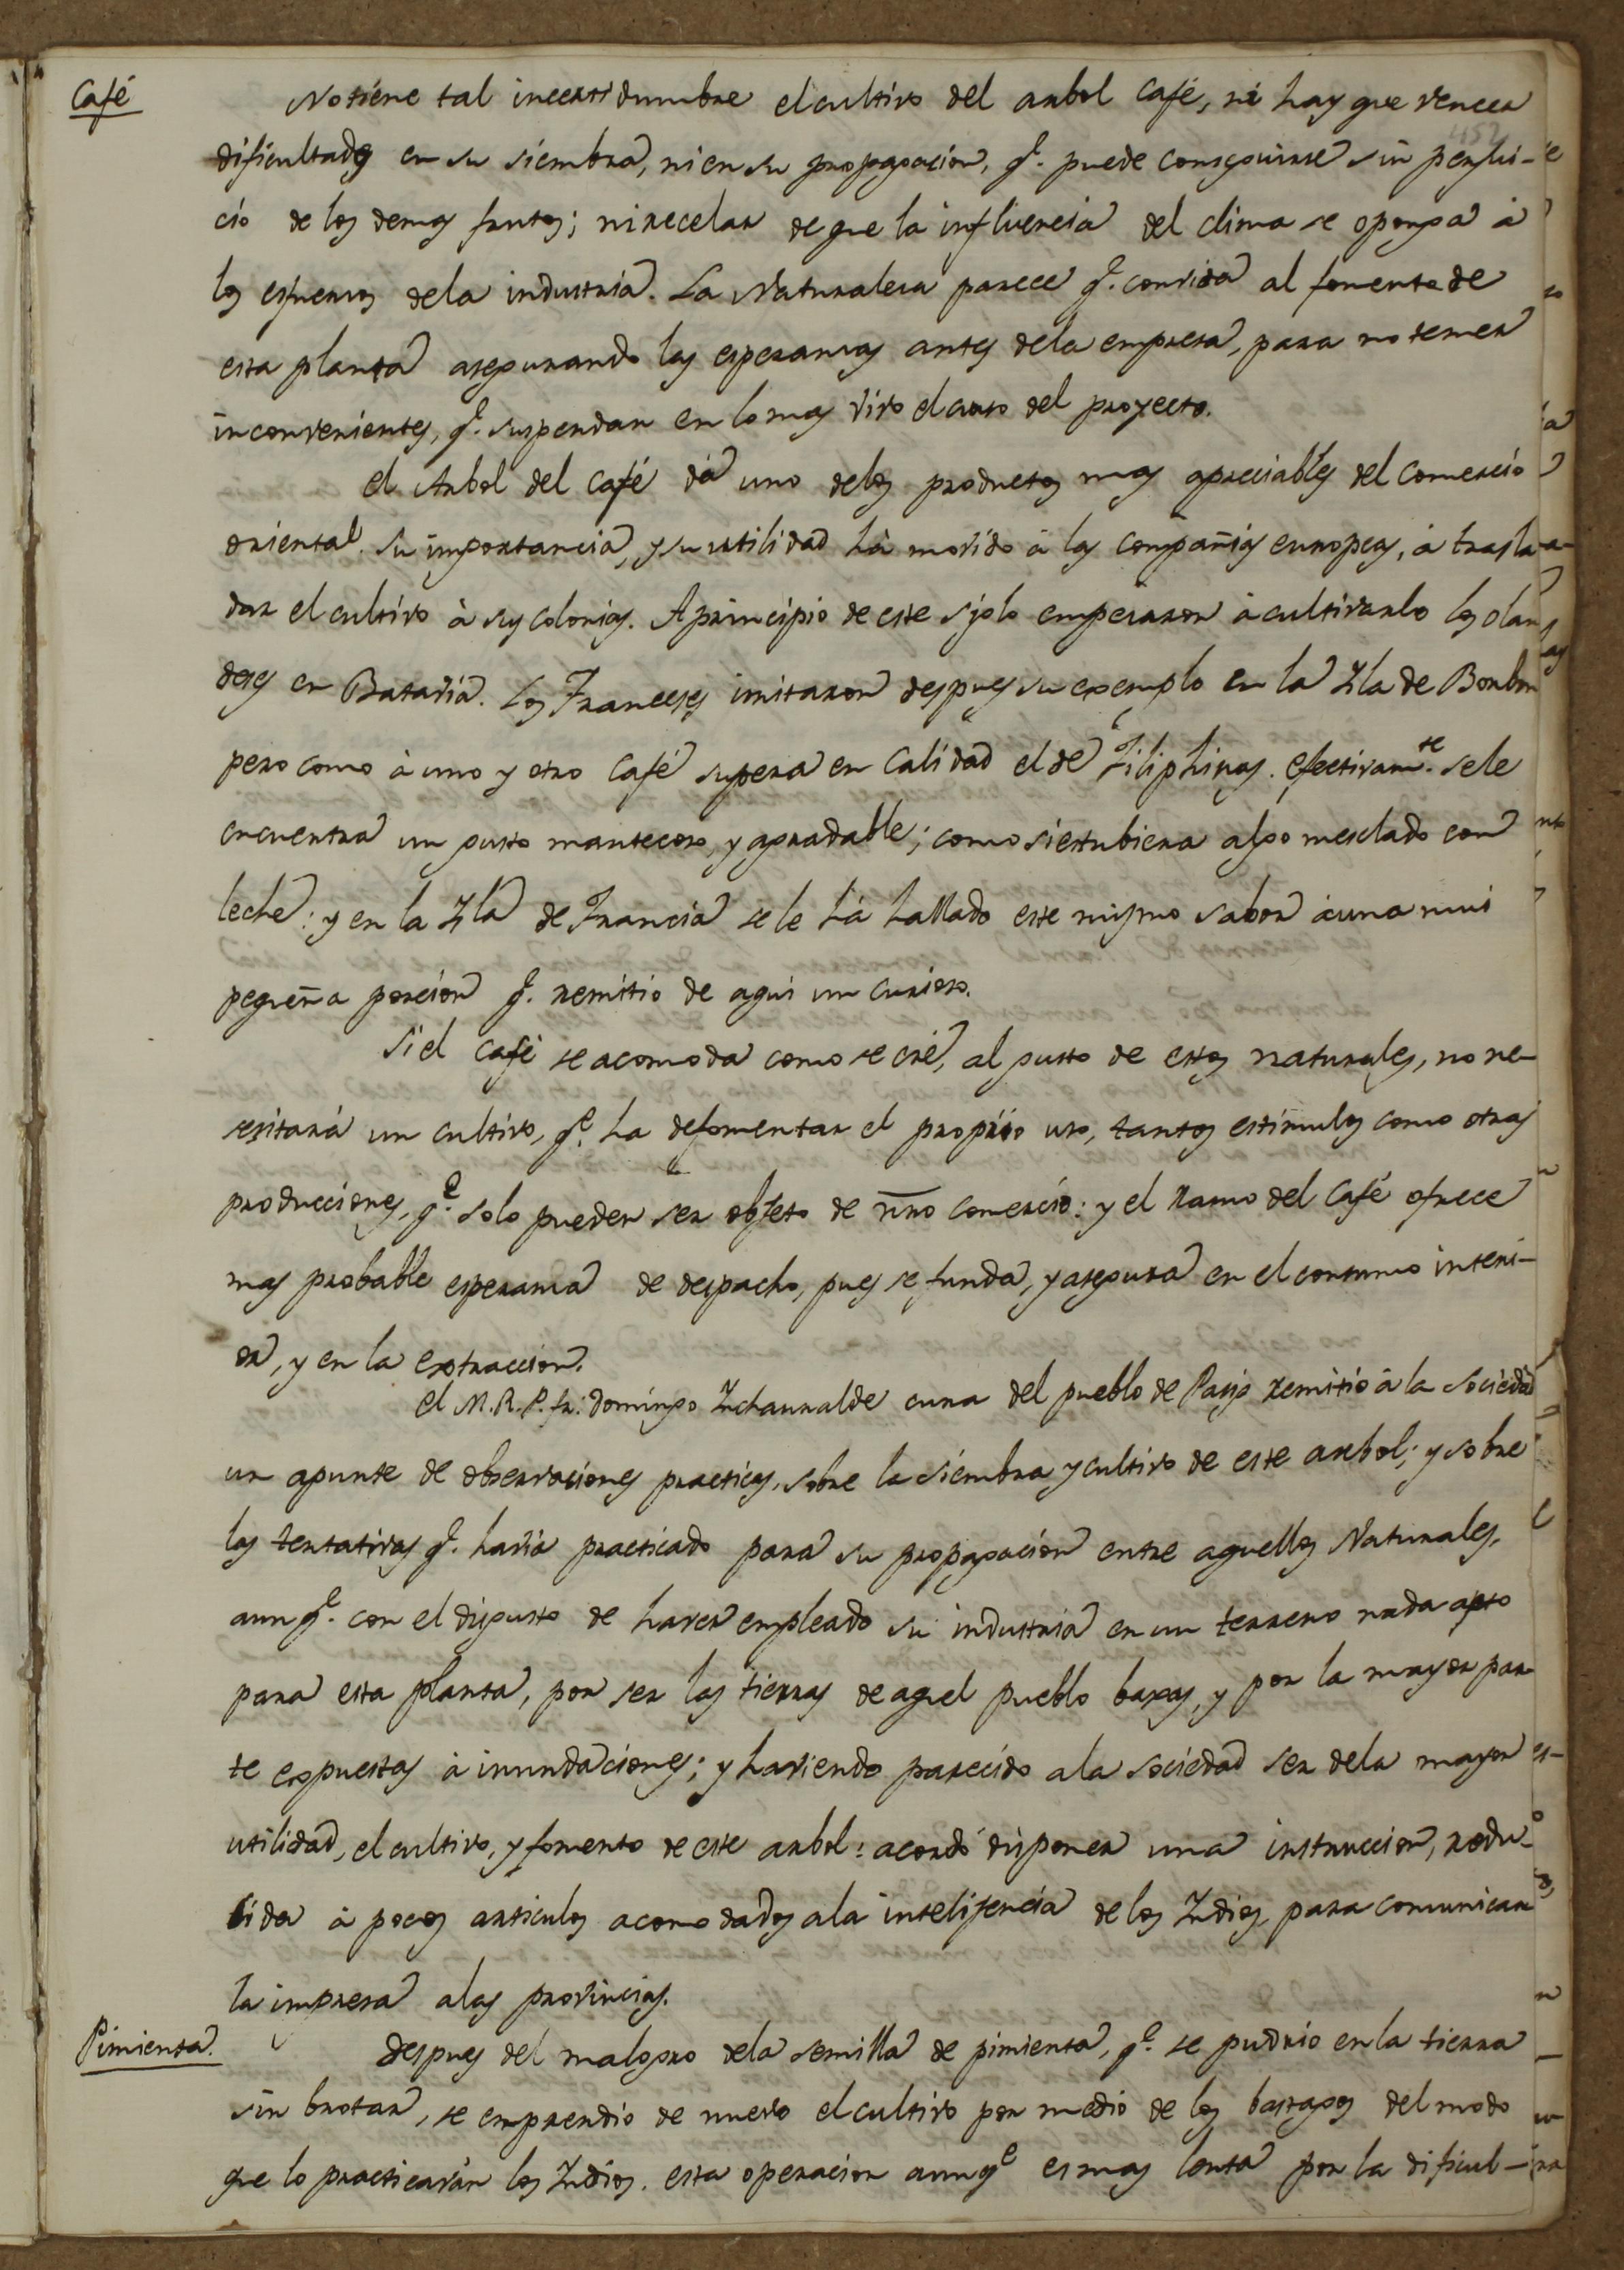 Café
No tiene tal incertidumbre el cultivo del arbol Café, ni hay que vencer
dificultades en su siembra, ni en su propagacion, q.e puede conseguirse sin perjui-
cio de los demas frutos; ni recelar de que la influencia del clima se oponga à
los esfuerzos dela industria. La Naturaleza parece q.e convida al fomento de
esta planta asegurando las esperanzas antes dela empresa, para no temer
inconvenientes, q.e suspendan en lo mas vivo el curso del proyecto.
el Arbol del café dá uno delos productos mas apreciables del Comercio
oriental. Su importancia, y su utilidad há movido à las compañias europeas, à trasla-
dar el cultivo à sus colonias. A principio de este siglo empezaron à cultivarlo los olan
deses en Batavia. Los Franceses imitaron despues su exemplo en la Ysla de Borbon
pero como à uno y otro Café supera en Calidad el de Filiphinas. efectivam.te sele
encuentra un gusto mantecoso, y agradable; como si estubiera algo mesclado con
leche: y en la Ysla de Francia se le há hallado este mismo sabor à una mui
pequeña porcion q.e remitio de aqui un curioso.
Si el café se acomoda como se cré, al gusto de estos naturales, no ne-
sesitará un cultivo, q.e ha defomentar el proprio uso, tantos estimulos como otras
producciones, q.e solo pueden ser objeto de nro comercio: y el Ramo del Café ofrece
mas probable esperanza de despacho, pues se funda, y asegura en el consumo interi-
or, y en la extraccion.
el M.R.P. fr. domingo Ychaurralde cura del pueblo de Pasig remitió à la Sociedad
un apunte de observaciones practicas, sobre la siembra y cultivo de este arbol; y sobre
las tentativas q.e havia practicado para su propagacion entre aquellos Naturales,
aunq.e con el disgusto de haver empleado su industria en un terreno nada apto
para esta planta, por ser las tierras de aquel pueblo baxas, y por la mayor par
te expuestas à inundaciones; y haviendo parecido ala Sociedad ser dela mayor
utilidad, el cultivo, y fomento de este arbol: acordó disponer una instruccion, redu-
cida à pocos articulos acomodados ala inteligencia de los Yndios para comunicar
la impresa alas provincias.
Pimienta.
despues del malogro dela semilla de pimienta, q.e se pudrio en la tierra
sin brotar, se emprendio de nuevo el cultivo por medio de los bastagos del modo
que lo practicavan los Yndios. esta operacion aunq.e es mas lenta por la dificul-